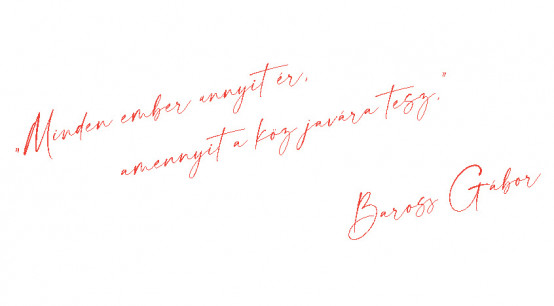 "Minden ember annyit ér,
amennyit a köz javára tesz."
Baross Gábor